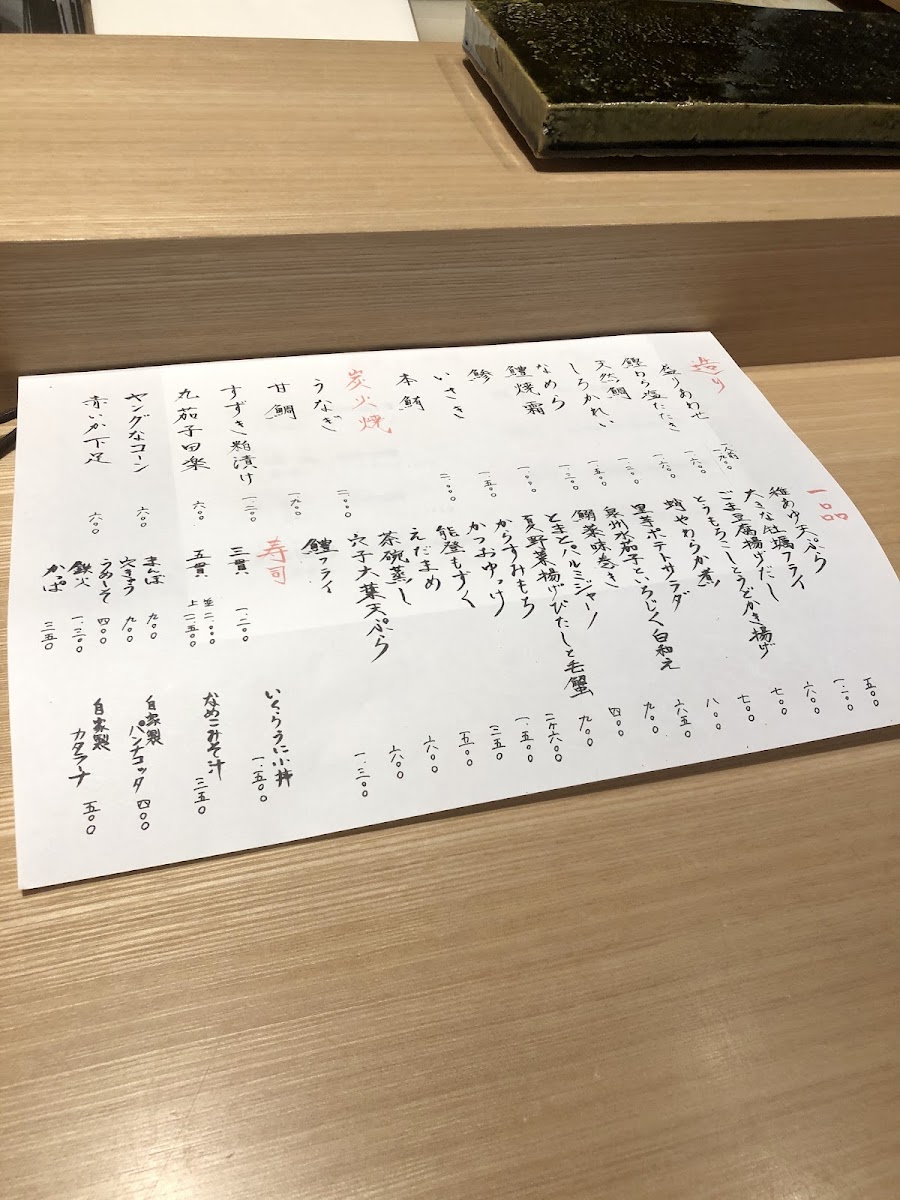 造り
盛りあわせ 一人前 一.九〇〇
鰹わら塩たたき 一.六〇〇
天然鯛 一.六〇〇
しろかれい 一.二〇〇
なめら 一.五〇〇
鱧焼霜 一.三〇〇
鯵 一.〇〇〇
いさき 一.五〇〇
本鮪 二.〇〇〇
炭火焼
うなぎ 二.〇〇〇
甘鯛 一.九〇〇
すずき粕漬け 一.二〇〇
丸茄子田楽 六〇〇
ヤングなコーン 六〇〇
青いか下足 六〇〇
一品
稚あゆ天ぷら 五〇〇
大きな牡蠣フライ 一.二〇〇
ごま豆腐揚げだし 六〇〇
とうもろこしとうどかき揚げ 七〇〇
蛸やわらか煮 七〇〇
里芋ポテトサラダ 八〇〇
泉州水茄子といちじく白和え 六五〇
鰯薬味巻き 九〇〇
とまとパルミジャーノ 四〇〇
夏野菜揚げびたしと毛蟹 九〇〇
からすみもち 二ケ六〇〇
かつおゆっけ 一.五〇〇
能登もずく 三五〇
えだまめ 五〇〇
茶碗蒸し 六〇〇
穴子大葉天ぷら 六〇〇
鱧フライ 一.三〇〇
寿司
三貫 一.二〇〇
五貫 並二.〇〇〇
上二.五〇〇
まんぼ 九〇〇
穴きゅう 九〇〇
うめーそ 四〇〇
鉄火 一.三〇〇
かっぱ 三五〇
いくらうに小丼 一.五〇〇
なめこみそ汁 三五〇
自家製パンナコッタ 四〇〇
自家製カタラーナ 五〇〇